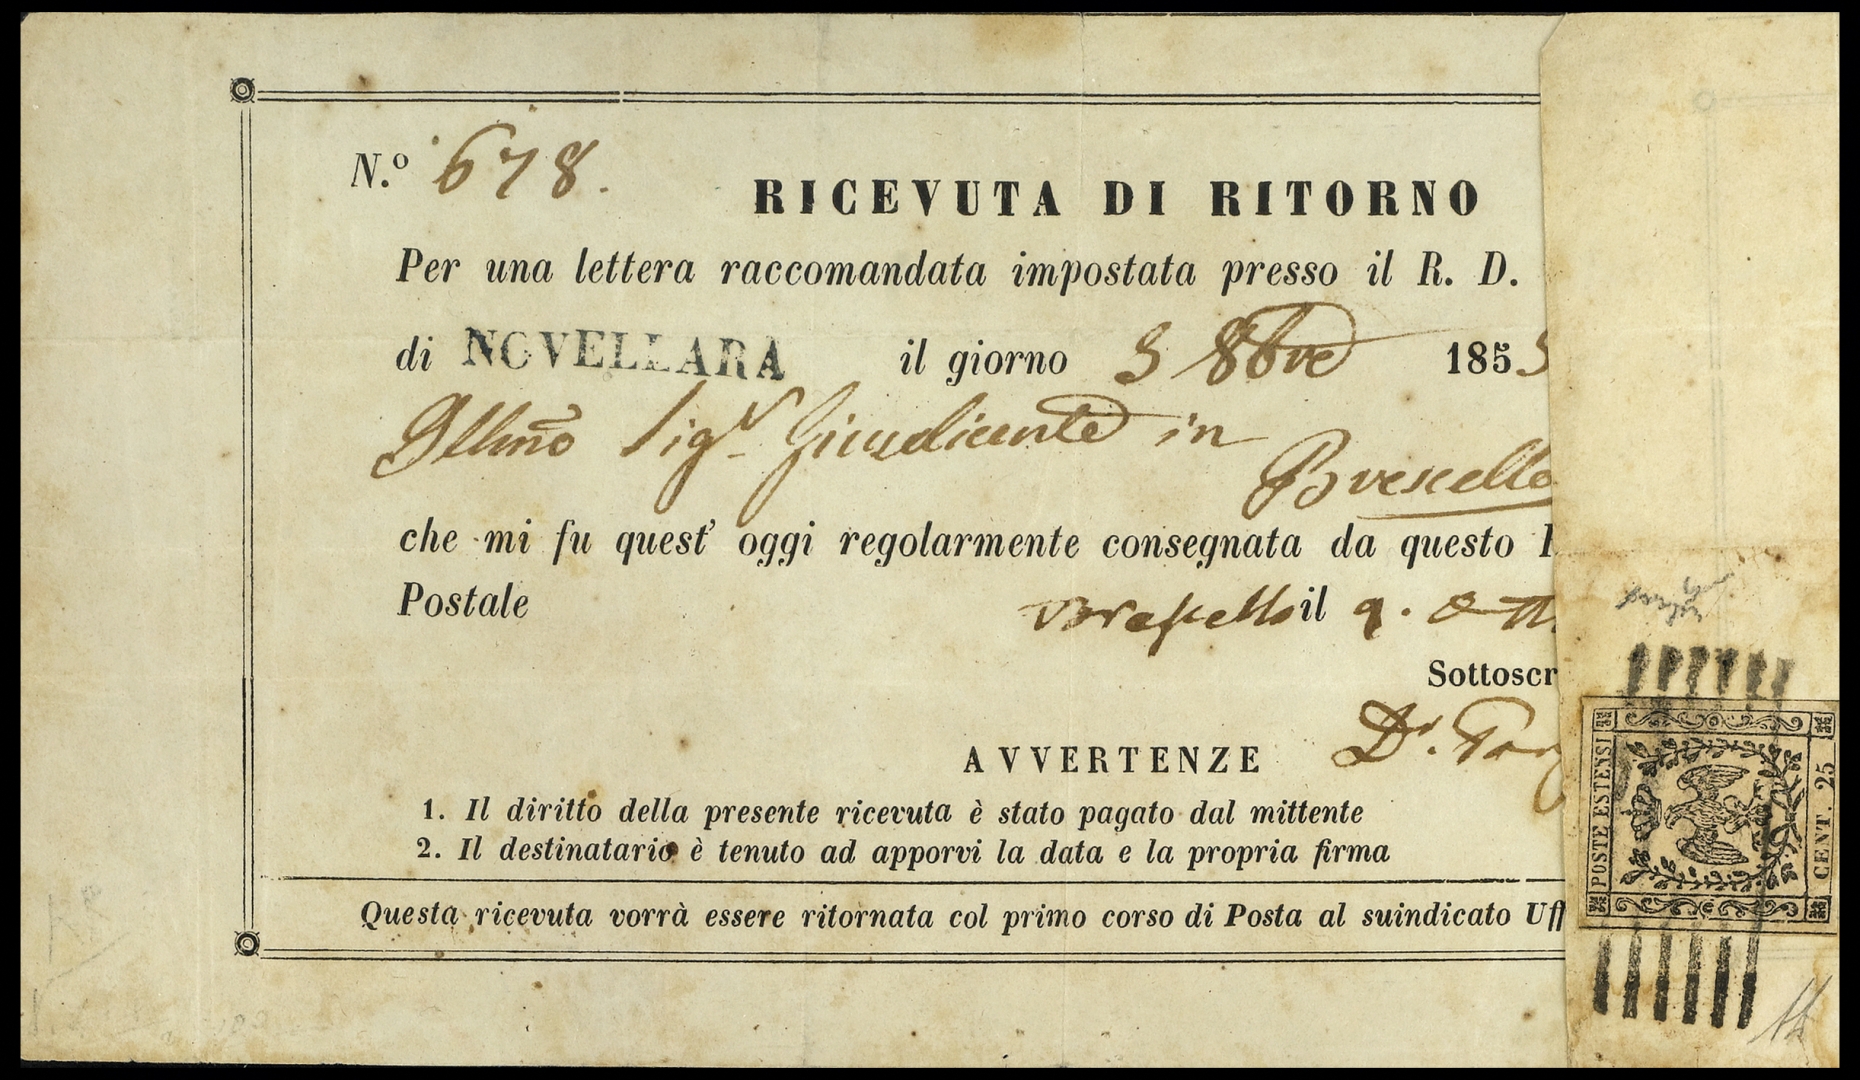 N.º 678.
RICEVUTA DI RITORNO
Per una lettera raccomandata impostata presso il R. D.
di NOVELLARA il giorno 3 8bre 1853
Illmo Sigr Giusdicente in
Brescello
che mi fu quest' oggi regolarmente consegnata da questo
Postale Brescello il 9. Ott
Sottoscr
Dr.
AVVERTENZE
1. Il diritto della presente ricevuta è stato pagato dal mittente
2. Il destinatario è tenuto ad apporvi la data e la propria firma
Questa ricevuta vorrà essere ritornata col primo corso di Posta al suindicato Uff
POSTE ESTENSI
CENT. 25